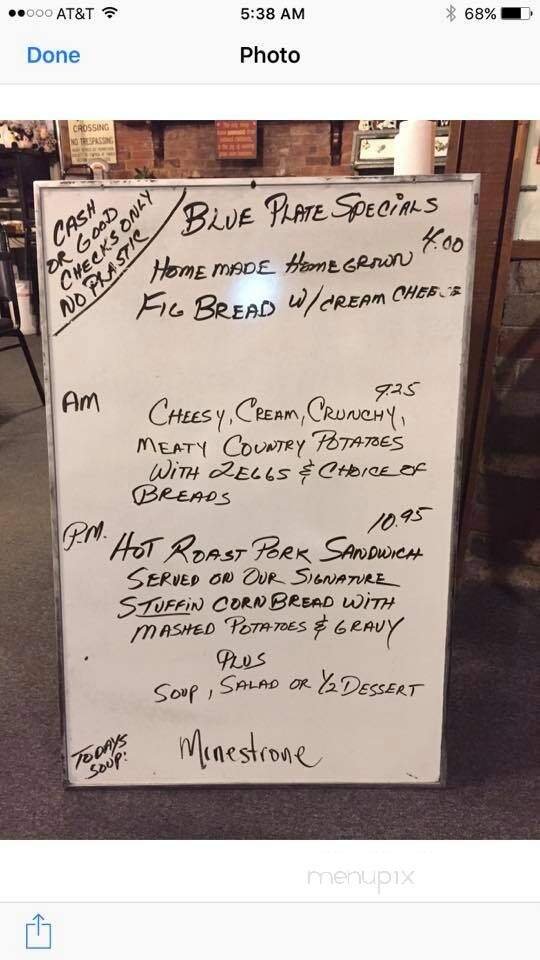 AT&T
5:38 AM
68%
Done
Photo
CROSSING
NO TRESPASSING
CASH
OR GOOD
CHECKS ONLY
NO PLASTIC
BLUE PLATE SPECIALS
HOME MADE HOME GROWN 4.00
FIG BREAD W/ CREAM CHEESE
AM
9.25
CHEESY, CREAM, CRUNCHY,
MEATY COUNTRY POTATOES
WITH 2 EGGS & CHOICE OF
BREADS
P.M.
10.95
HOT ROAST PORK SANDWICH
SERVED ON OUR SIGNATURE
STUFFIN CORN BREAD WITH
MASHED POTATOES & GRAVY
PLUS
SOUP, SALAD OR 1/2 DESSERT
TODAYS
SOUP:
Minestrone
menupix